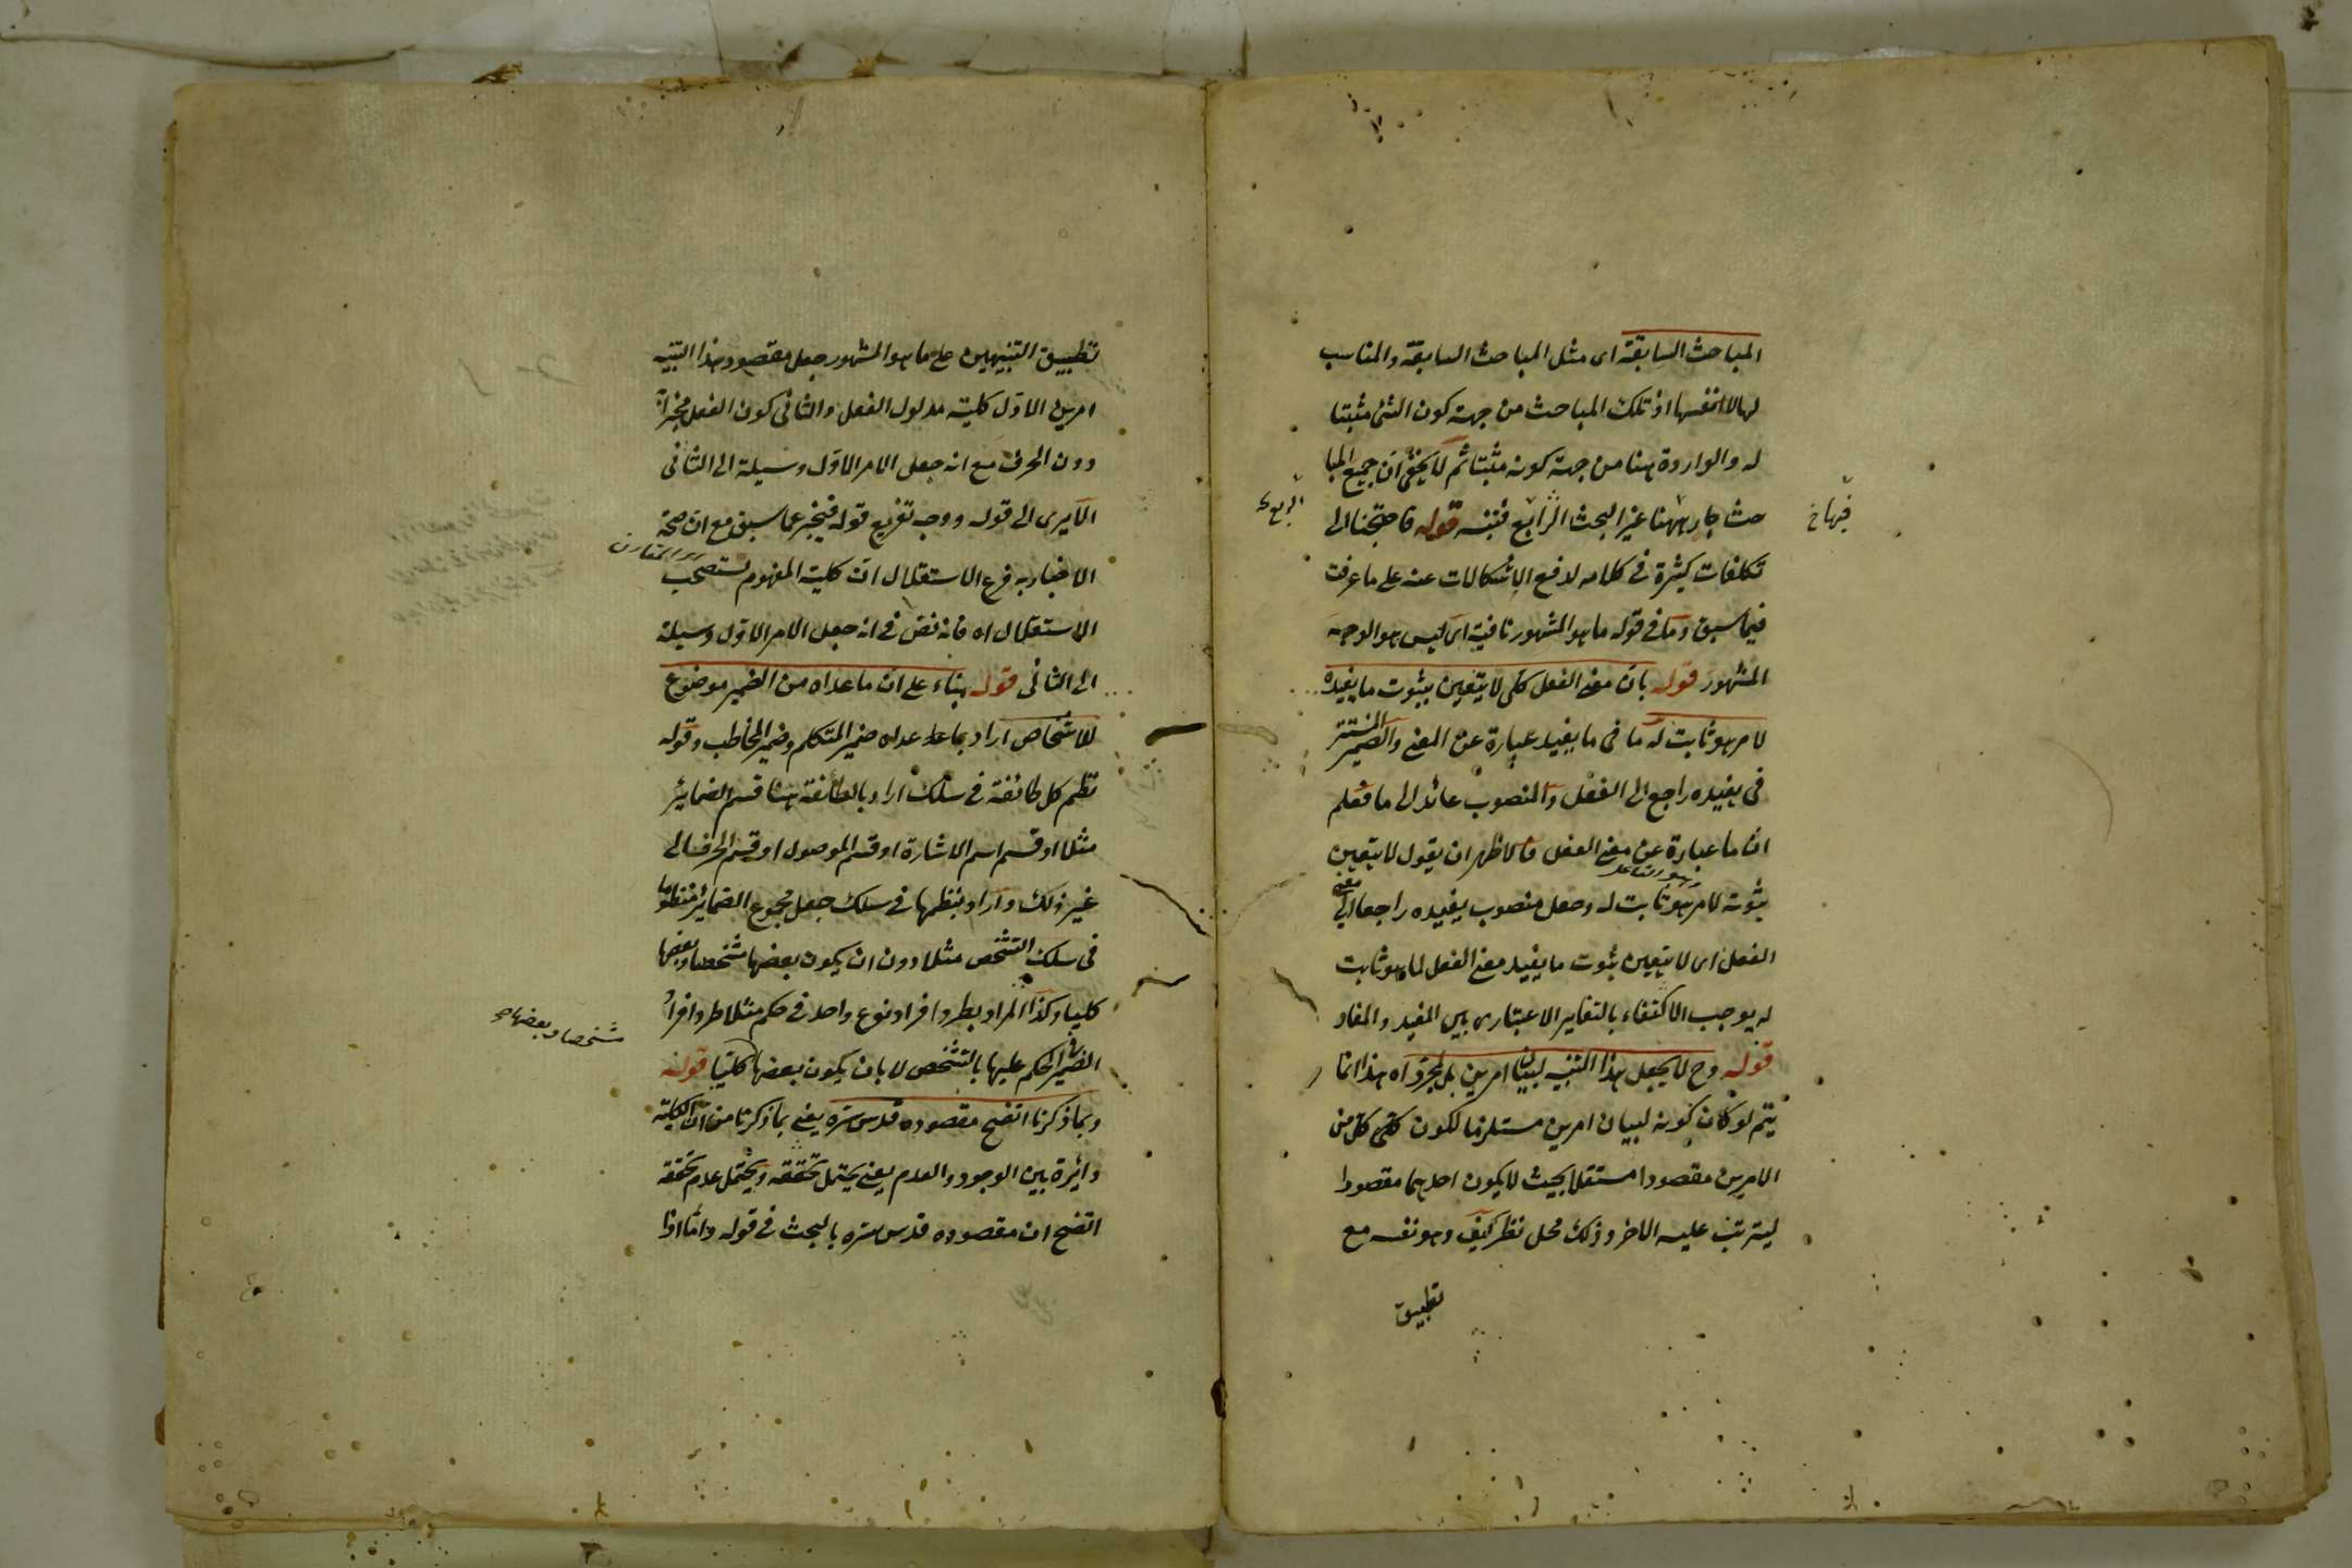 المباحث السابقة اى مثل المباحث السابقة والمناسب
لها لا انفسها اذ تلك المباحث من جهة كون الشئ مثبتا
له والواردة هنا من جهة كونه مثبتا ثم لا يخفى ان جميع المبا
حث جار ههنا غير البحث الرابع فتنبه قوله فاحتجنا الى
تكلفات كثيرة فى كلامه لدفع الاشكالات عنه على ما عرفت
فيما سبق وما فى قوله ما هو المشهور نافية اى ليس هو الوجه
المشهور قوله بان معنى الفعل كلى لا يتعين بثبوت ما يفيده
لامر هو ثابت له ما فى ما يفيد عبارة عن المعنى والضمير المستتر
فى يفيده راجع الى الفعل والمنصوب عائد الى ما فعلم
ان ما عبارة عن معنى الفعل فالاظهر ان يقول لا يتعين
ثبوته لامر هو ثابت له وجعل منصوب يفيده راجعا الى معنى
الفعل اى لا يتعين بثبوت ما يفيد معنى الفعل لما هو ثابت
له يوجب الاكتفاء بالتغاير الاعتبارى بين المفيد والمفاد
قوله وح لا يجعل هذا التنبيه لبيان امرين بل لمجرد اه هذا انما
يتم لو كان كونه لبيان امرين مستلزما لكون كل من
الامرين مقصودا مستقلا بحيث لا يكون احدهما مقصودا
ليترتب عليه الاخر وذلك محل نظر كيف وهو نفسه مع
تطبيق
فيها خ
الرابع
تطبيق التنبيهين على ما هو المشهور جعل مقصود هذا التنبيه
امرين الاول كلية مدلول الفعل والثانى كون الفعل مخبرا به
دون الحرف مع انه جعل الامر الاول وسيلة الى الثانى
الا يرى الى قوله ووجه تفريع قوله فيخبر عما سبق مع ان صحة
الاخبار به فرع الاستقلال ان كلية المفهوم تستصحب
الاستقلال اه فانه نص فى انه جعل الامر الاول وسيلة
الى الثانى قوله بناء على ان ما عداه من الضمير موضوع
للاشخاص اراد بما عداه ضمير المتكلم وضمير المخاطب وقوله
نظم كل طائفة فى سلك اراد بالطائفة هنا قسم الضمائر
مثلا او قسم اسم الاشارة او قسم الموصول او قسم الحرف الى
غير ذلك واراد بنظمها فى سلك جعل مجموع الضمائر منظوما
فى سلك التشخص مثلا دون ان يكون بعضها مشخصا وبعضها
كليا وكذا المراد بطرد افراد نوع واحد فى حكم مثلا طرد افراد
الضمير فى الحكم عليها بالتشخص لا بان يكون بعضها كليا قوله
وبما ذكرنا اتضح مقصوده قدس سره يعنى بما ذكرنا من ان الكلية
دائرة بين الوجود والعدم يعنى يحتمل تحققه ويحتمل عدم تحققه
اتضح ان مقصوده قدس سره بالبحث فى قوله واما اذا
مشخصا وبعضها صح